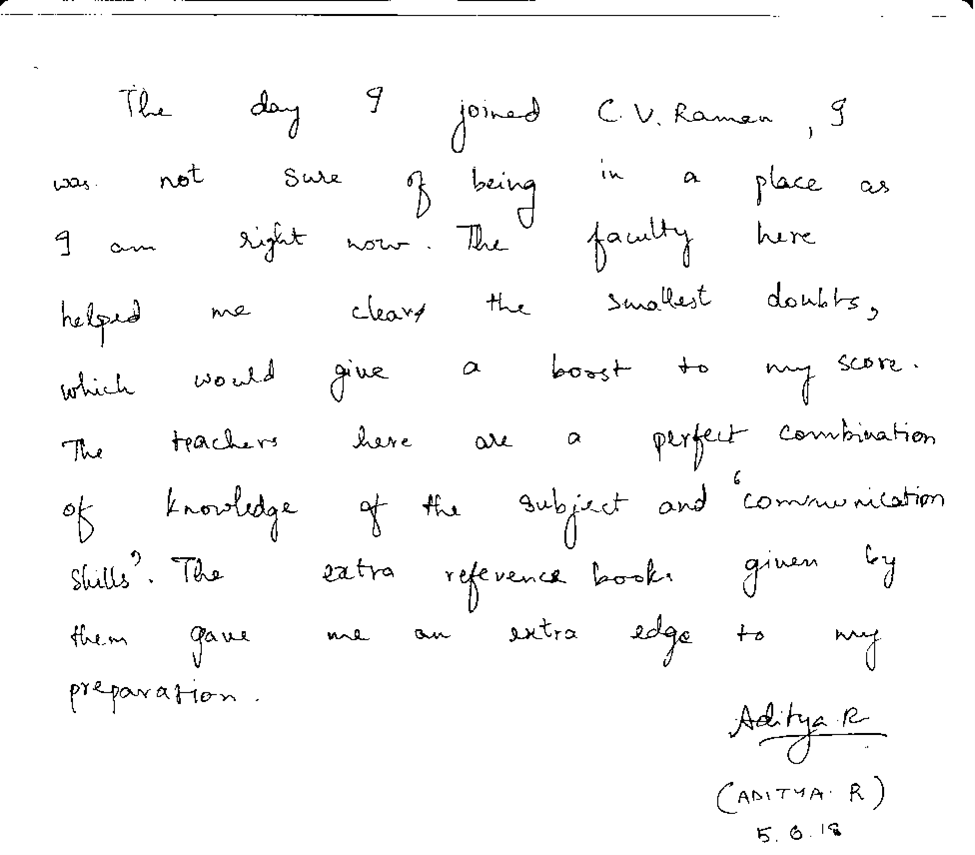 The day I joined C.V. Raman, I
was not sure of being in a place as
I am right now. The faculty here
helped me clear the smallest doubts,
which would give a boost to my score.
The teachers here are a perfect combination
of knowledge of the subject and 'communication
skills'. The extra reference books given by
them gave me an extra edge to my
preparation.
Aditya R
(ADITYA R)
5.6.18